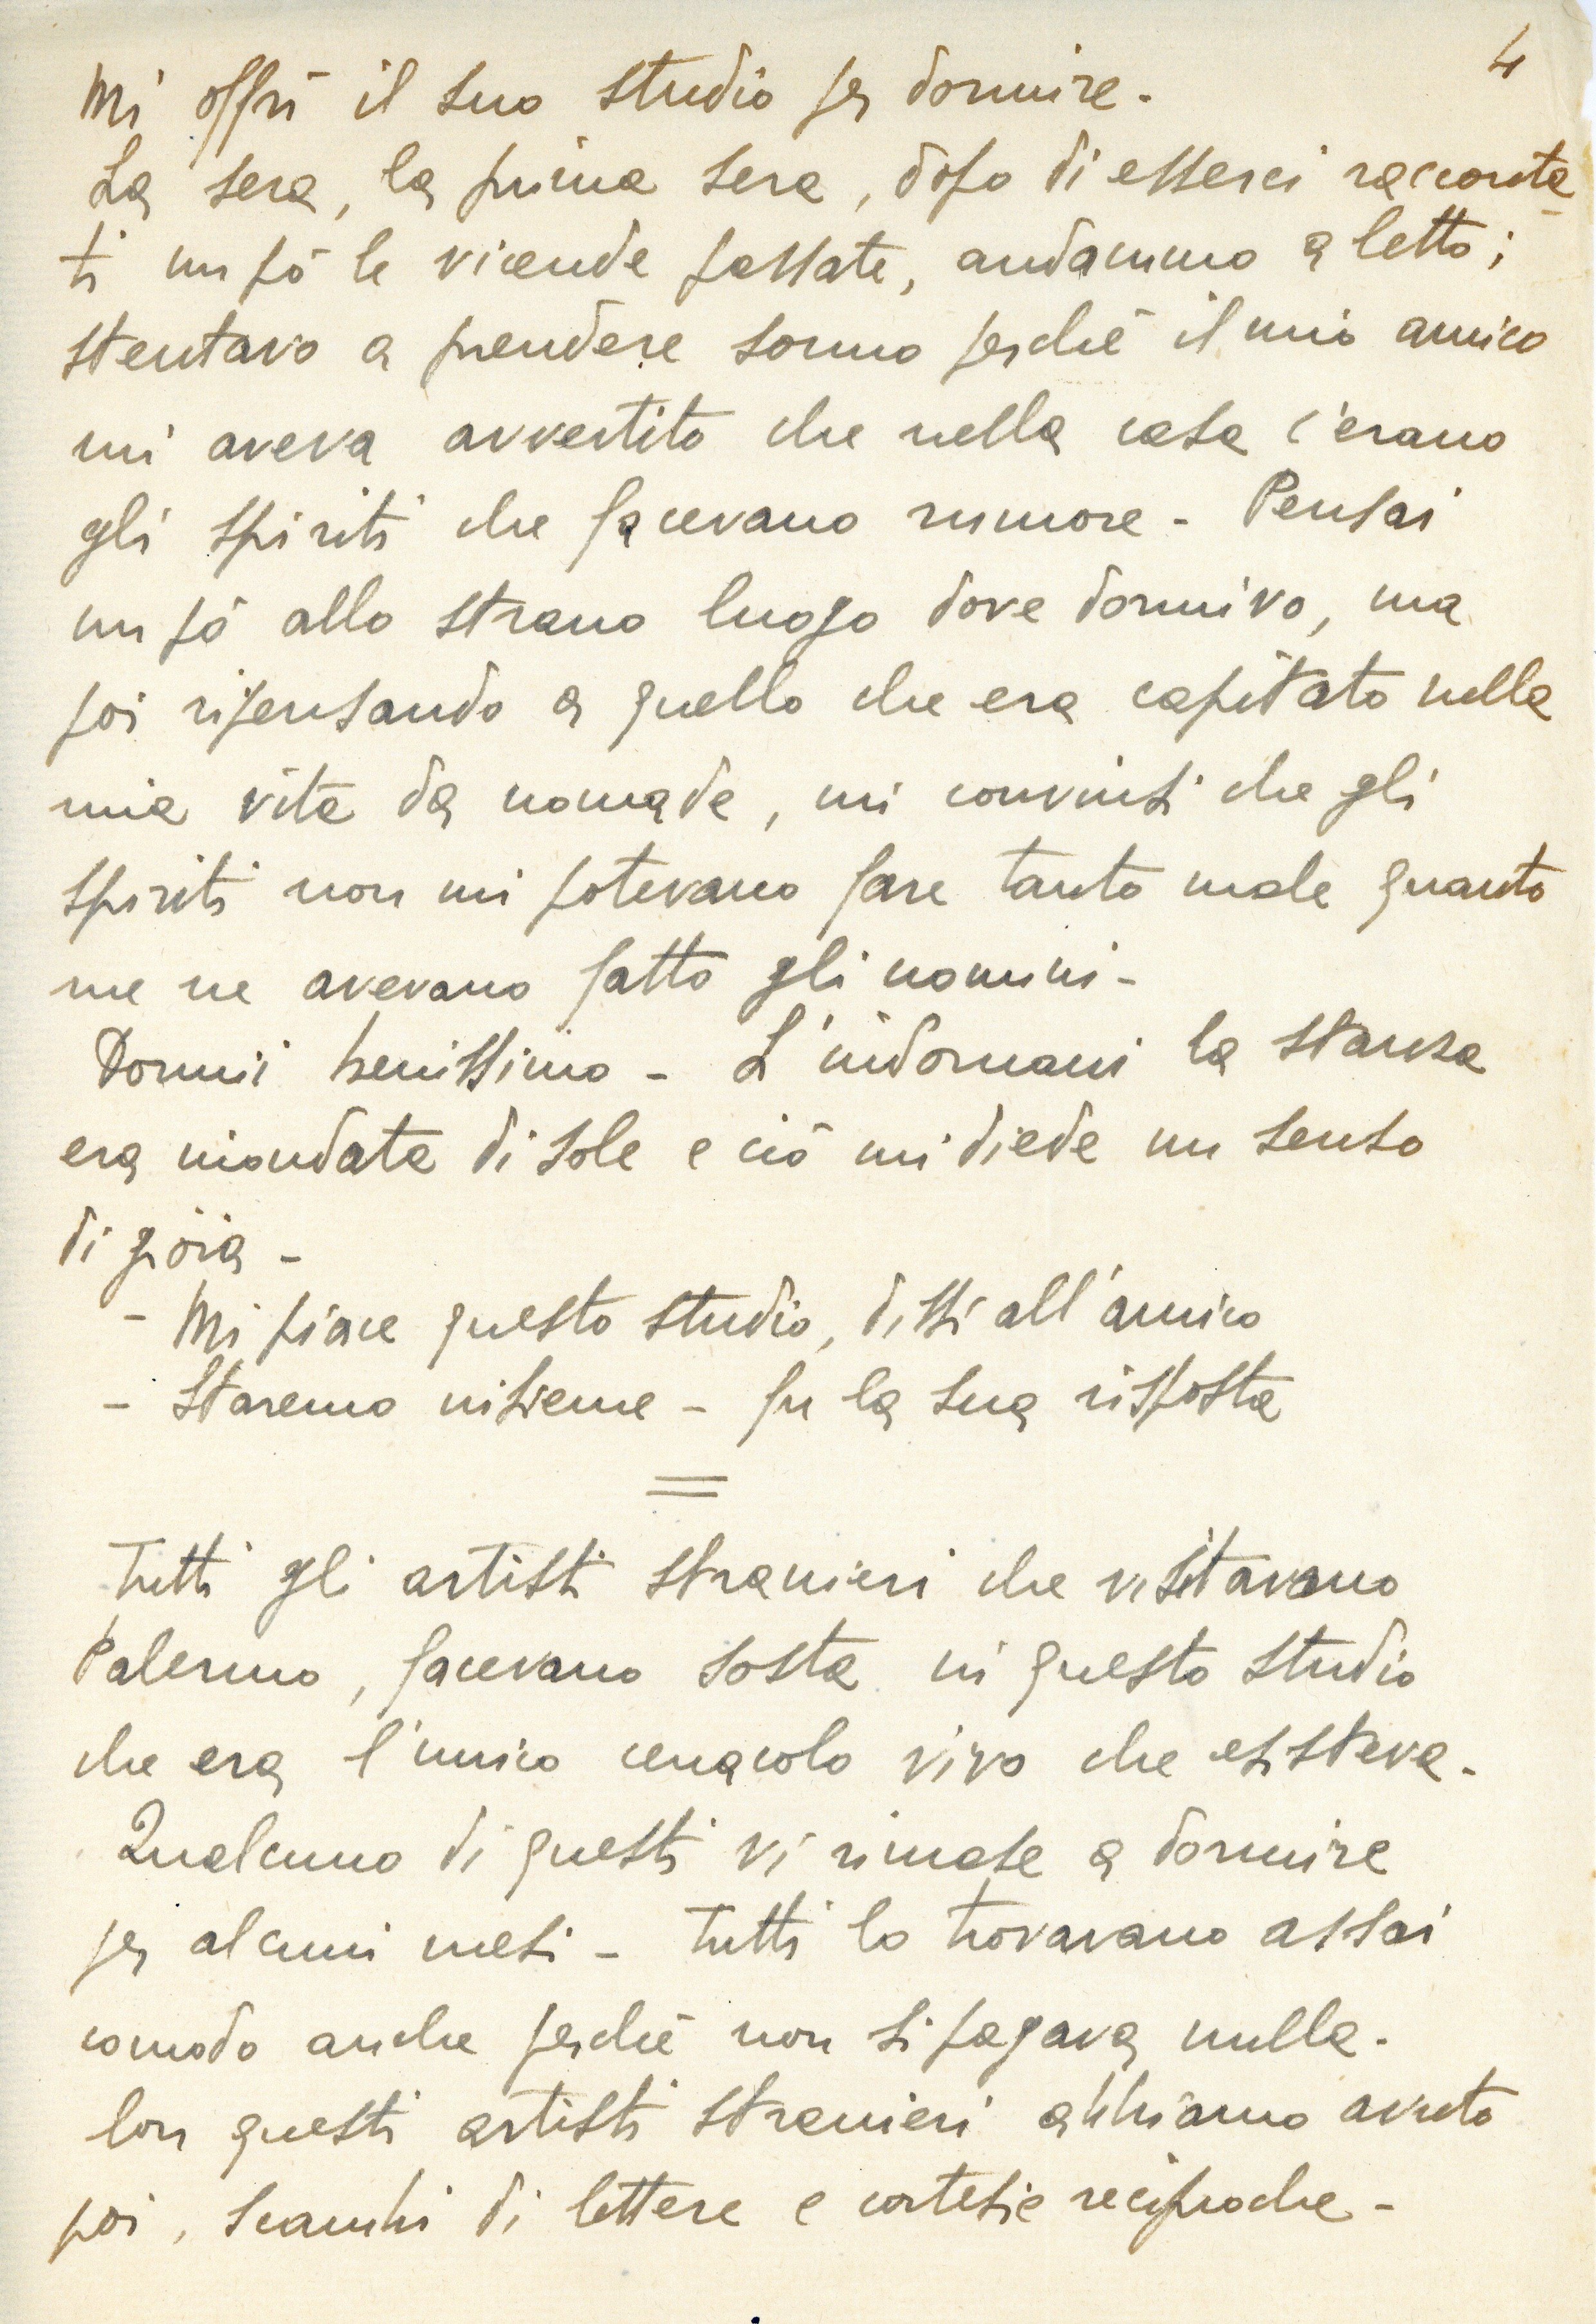 4
Mi offrì il suo studio per dormire.
La sera, la prima sera, dopo di esserci racconta-
ti un pò le vicende passate, andammo a letto;
stentavo a prendere sonno perchè il mio amico
mi aveva avvertito che nella casa c'erano
gli spiriti che facevano rumore - Pensai
un pò allo strano luogo dove dormivo, ma
poi ripensando a quello che era capitato nella
mia vita da nomade, mi convinsi che gli
spiriti non mi potevano fare tanto male quanto
me ne avevano fatto gli uomini -
Dormii benissimo - L'indomani la stanza
era inondata di sole e ciò mi diede un senso
di gioia -
- Mi piace questo studio, dissi all'amico
- Staremo insieme - fu la sua risposta
=
Tutti gli artisti stranieri che visitavano
Palermo, facevano sosta in questo studio
che era l'unico cenacolo vivo che esisteva.
Qualcuno di questi vi rimase a dormire
per alcuni mesi - Tutti lo trovavano assai
comodo anche perchè non si pagava nulla.
Con questi artisti stranieri abbiamo avuto
poi, scambi di lettere e cortesie reciproche -